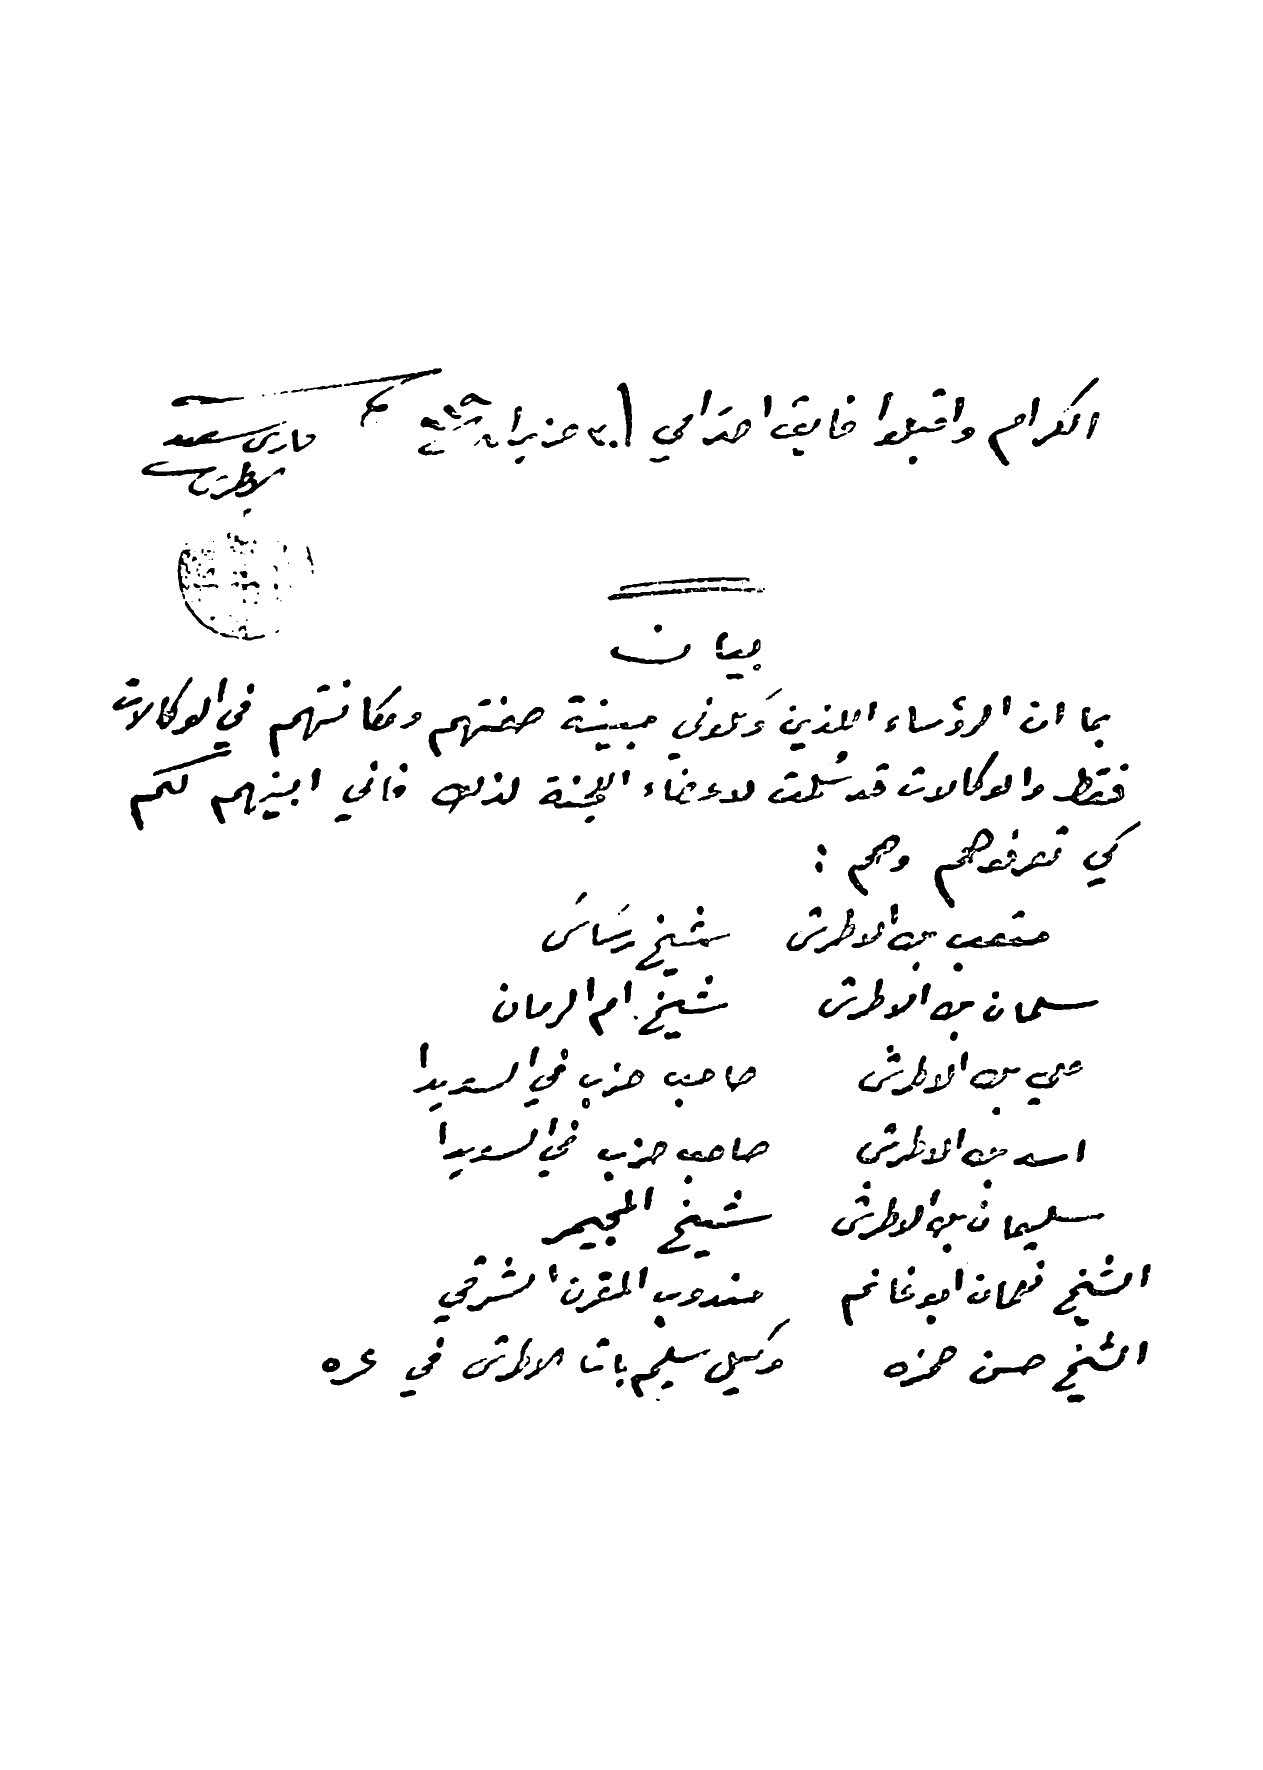 الكرام واقبلوا فايق احترامي ٣٠ حزيران سنة ٩١٩
فارس سعيد
الاطرش
بيان
بما ان الرؤساء اللذين وَكلوني مبينة صفتهم ومكانتهم في الوكالات
فقط والوكالات قد سُلمت لاعضاء اللجنة لذلك فاني ابينهم لكم
كي تعرفوهم وهم :
متعب بك الاطرش شيخ رسَاسَ
سلمان بك الاطرش شيخ ام الرمان
علي بك الاطرش صاحب حزب في السويدا
اسد بك الاطرش صاحب حزب في السويدا
سليمان بك الاطرش شيخ المجيمر
الشيخ نعمان ابو غانم مندوب المقرن الشرقي
الشيخ حسن حمزه وكيل سليم باشا الاطرش في عره